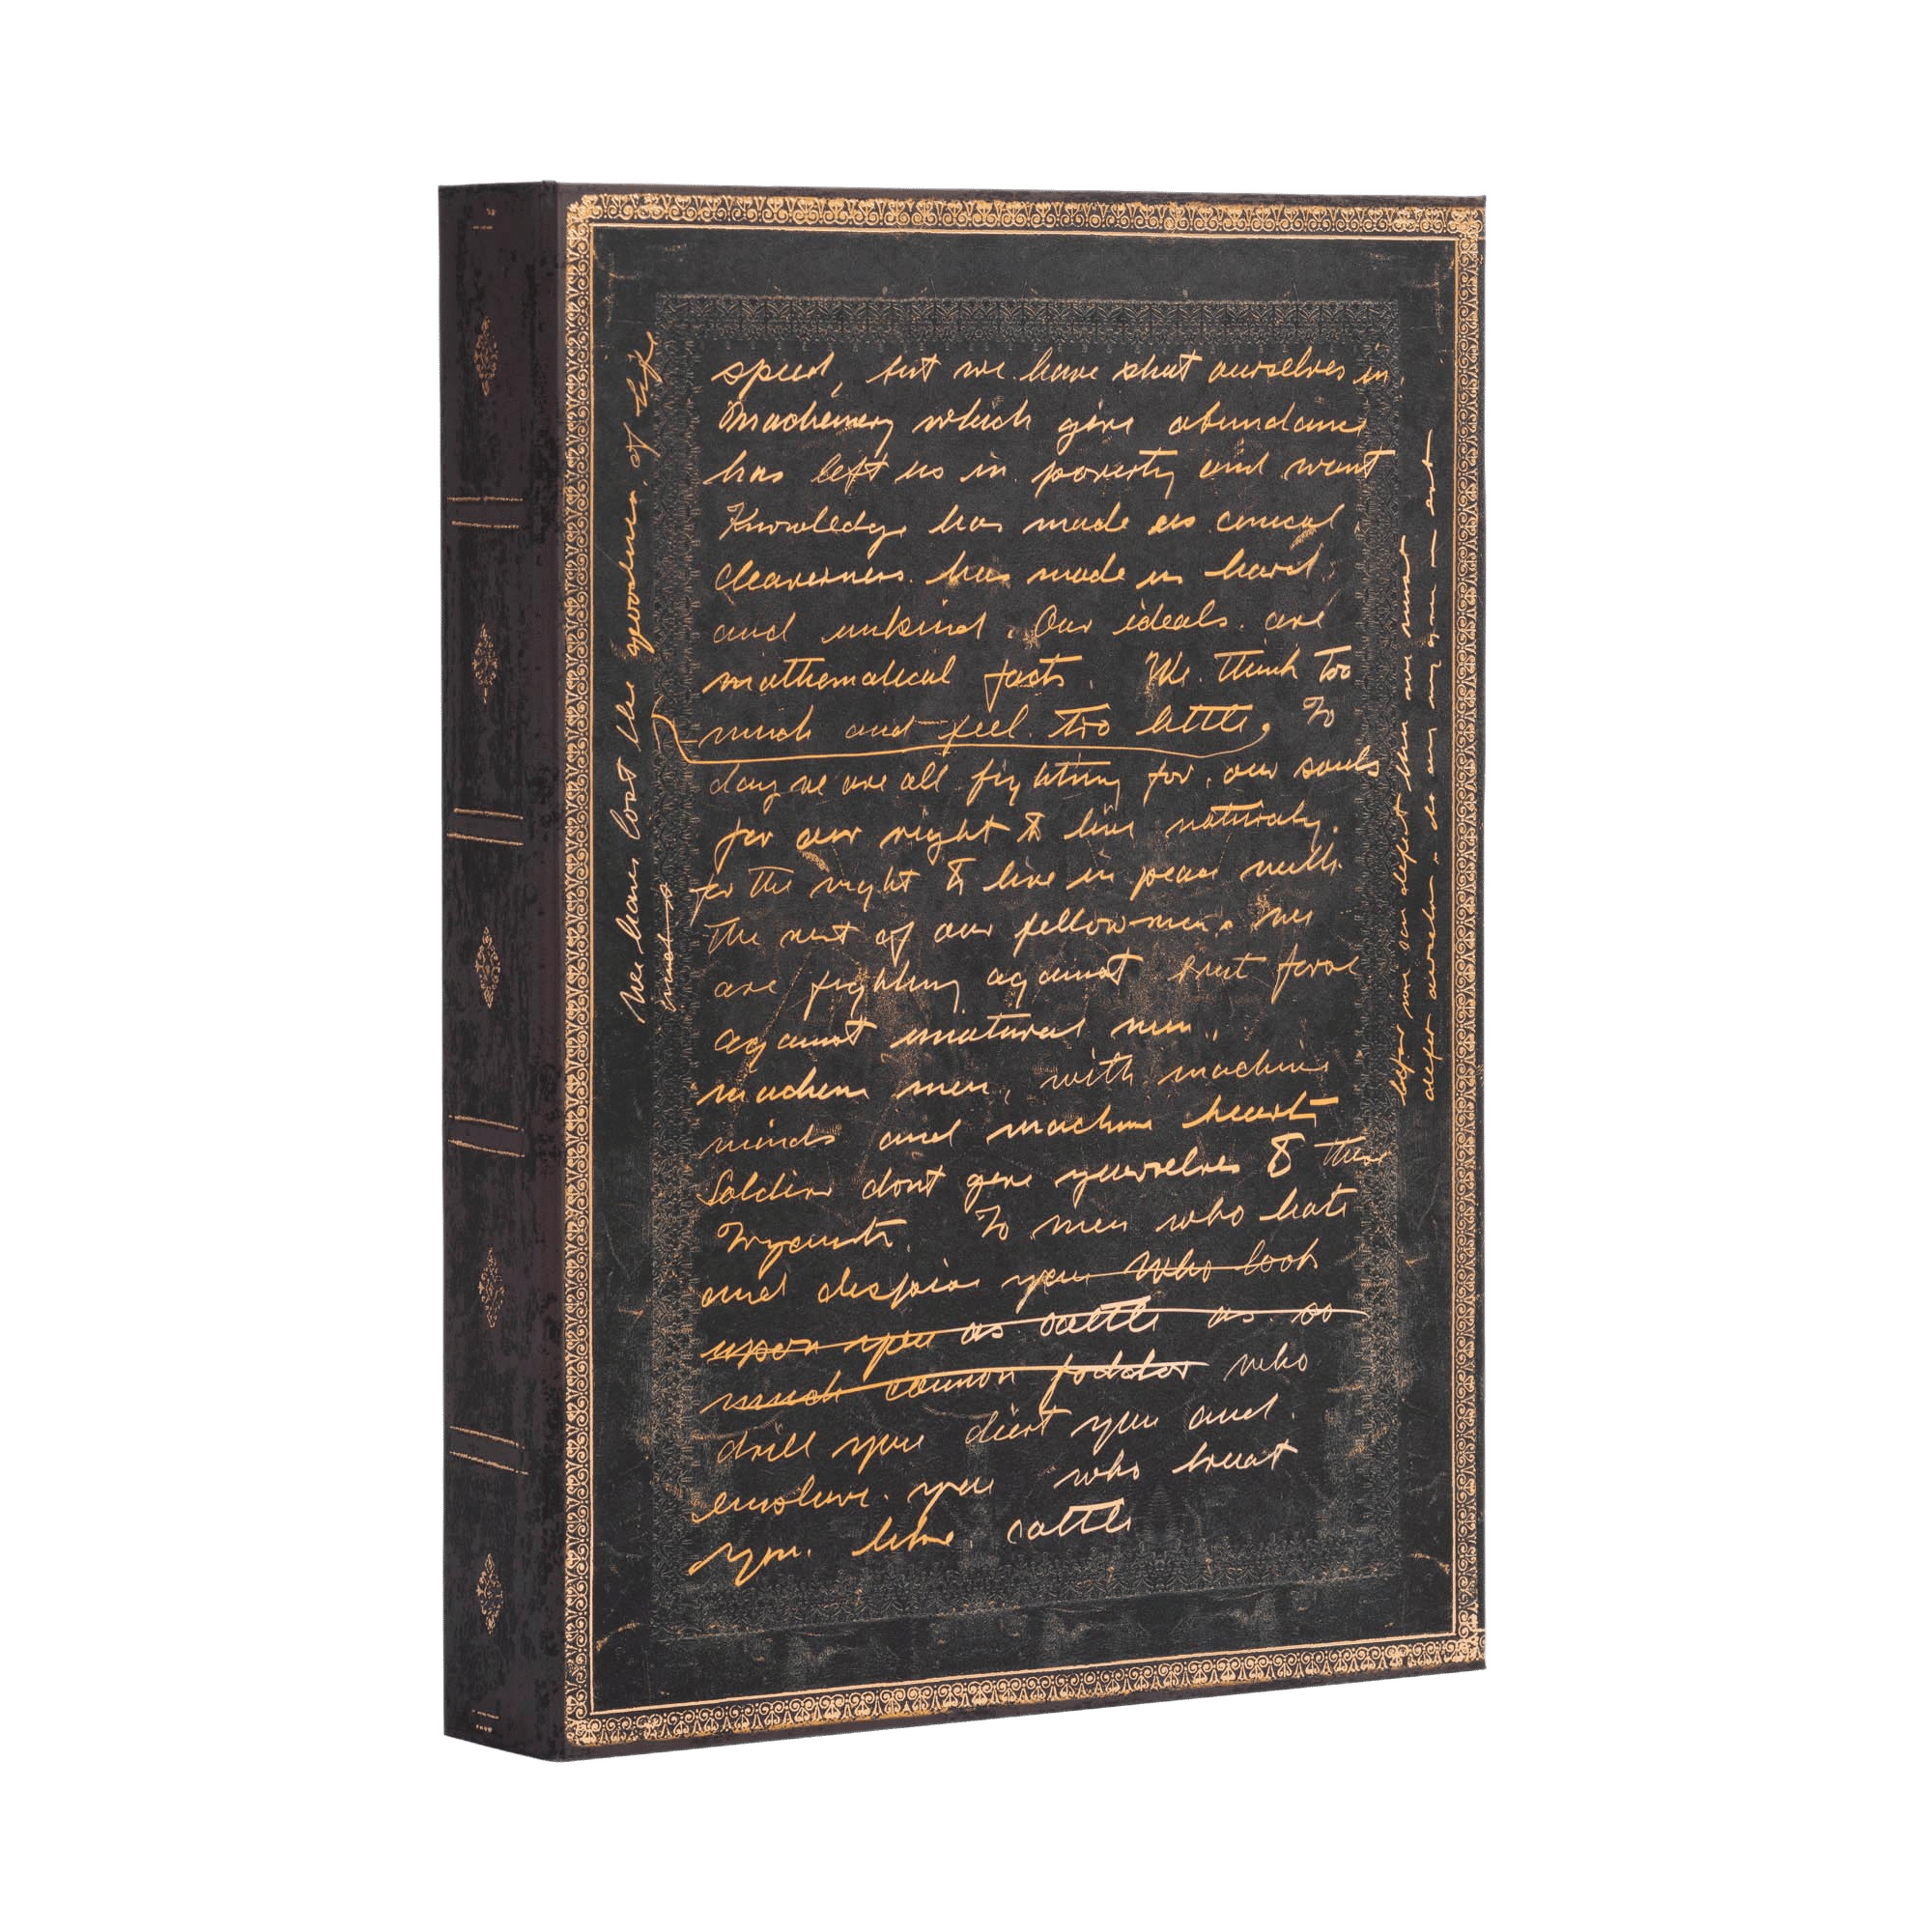 speed, but we have shut ourselves in.
Machinery which give abundance
has left us in poverty and want
Knowledge has made us cinical,
cleaverness has made us hard,
and unkind. Our ideals are
mathematical facts. We think too
much and feel too little. To
day we are all fighting for our souls
for our right to live naturaly.
for the right to live in peace with
the rest of our fellow-men. We
are fighting against brut force
against unatural men,
machine men, with machine
minds and machine hearts
Soldiers dont give yourselves to these
To men who hate
and despise you who look
upon you as cattle as so
much cannon fodder who
drill you diert you and
enslave you who treat
you like cattle
We have lost the goodness of life
before we can defeat him we must
defeat ourselves